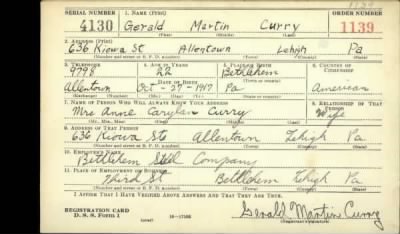 1139
SERIAL NUMBER 1. NAME (Print) ORDER NUMBER
4130 Gerald Martin Curry 1139
(First) (Middle) (Last)
2. ADDRESS (Print)
636 Kiowa St Allentown Lehigh Pa
(Number and street or R. F. D. number) (Town) (County) (State)
3. TELEPHONE 4. AGE IN YEARS 5. PLACE OF BIRTH 6. COUNTRY OF CITIZENSHIP
9798 22 Bethlehem
(Town or county)
Allentown Oct - 27 - 1917 Pa American
(Exchange) (Number) (Mo.) (Day) (Yr.) (State or country)
7. NAME OF PERSON WHO WILL ALWAYS KNOW YOUR ADDRESS 8. RELATIONSHIP OF THAT PERSON
Mrs Anne Curry Wife
(Mr., Mrs., Miss) (First) (Middle) (Last)
9. ADDRESS OF THAT PERSON
636 Kiowa St Allentown Lehigh Pa
(Number and street or R. F. D. number) (Town) (County) (State)
10. EMPLOYER'S NAME
Bethlehem Steel Company
11. PLACE OF EMPLOYMENT OR BUSINESS
Third St Bethlehem Lehigh Pa
(Number and street or R. F. D. number) (Town) (County) (State)
I AFFIRM THAT I HAVE VERIFIED ABOVE ANSWERS AND THAT THEY ARE TRUE.
REGISTRATION CARD
D. S. S. Form 1 (over) 16-17105 Gerald Martin Curry
(Registrant's signature)